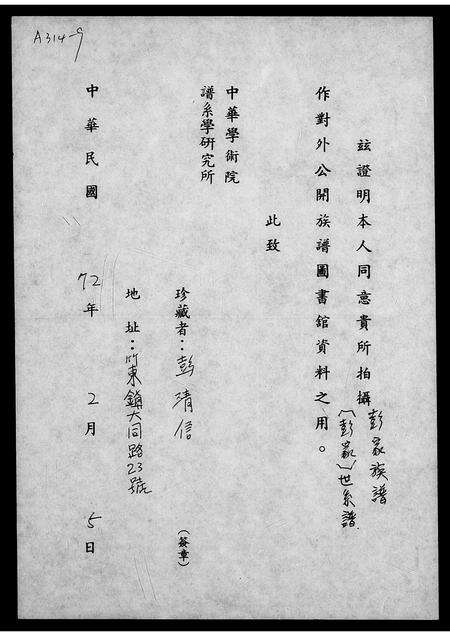 A314-9
茲證明本人同意貴所拍攝彭家族譜
(彭家)世系譜
作對外公開族譜圖書館資料之用。
此致
中華學術院
譜系學研究所
珍藏者：彭清信(簽章)
地址：竹東鎮大同路23號
中華民國72年2月5日